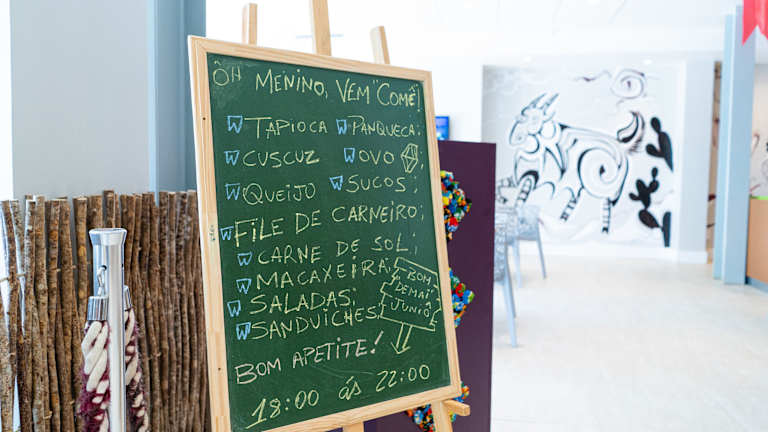 ÔH MENINO, VEM "COMÊ!
TAPIOCA PANQUECA;
CUSCUZ OVO
QUEIJO SUCOS;
FILE DE CARNEIRO;
CARNE DE SOL;
MACAXEIRA;
SALADAS;
SANDUICHES;
BOM
DEMAI
JUNIÔ
BOM APETITE!
18:00 ÁS 22:00